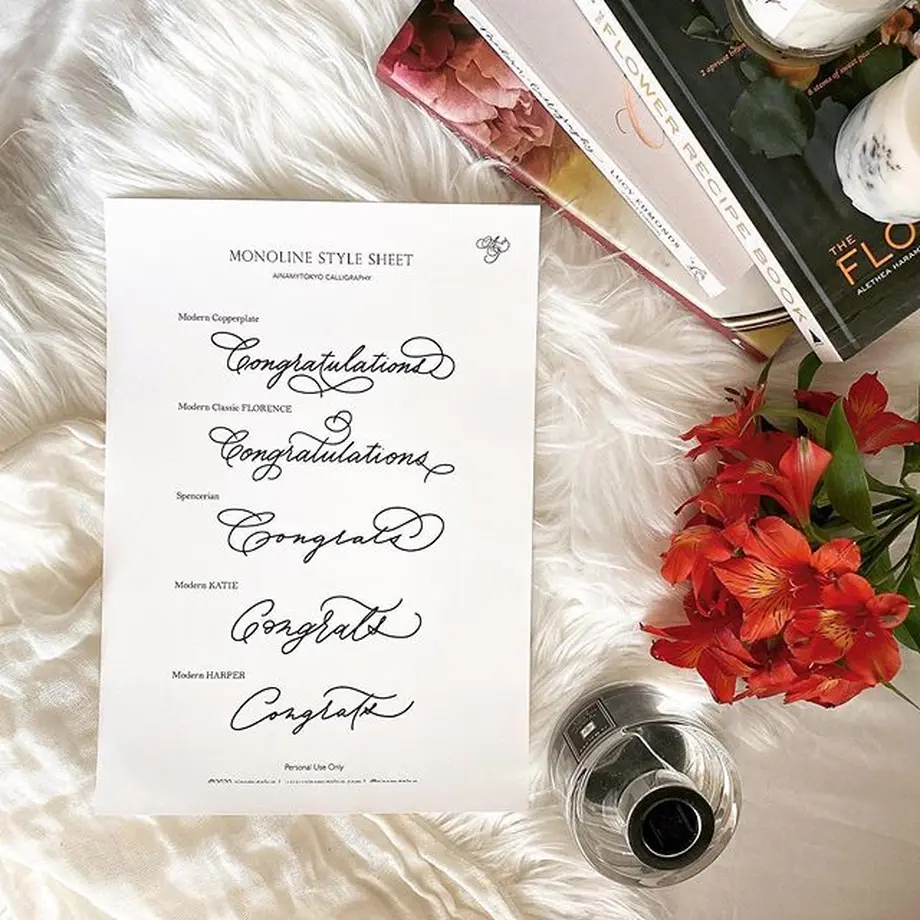 MONOLINE STYLE SHEET
AINAMYTOKYO CALLIGRAPHY
Modern Copperplate
Congratulations
Modern Classic FLORENCE
Congratulations
Spencerian
Congrats
Modern KATIE
Congrats
Modern HARPER
Congrats
Personal Use Only
©2020
Modern Calligraphy
LUCY EDMONDS
FLOWER RECIPE BOOK
2 apricot
6 stems of sweet pea
THE
FLO
ALETHEA HARAM